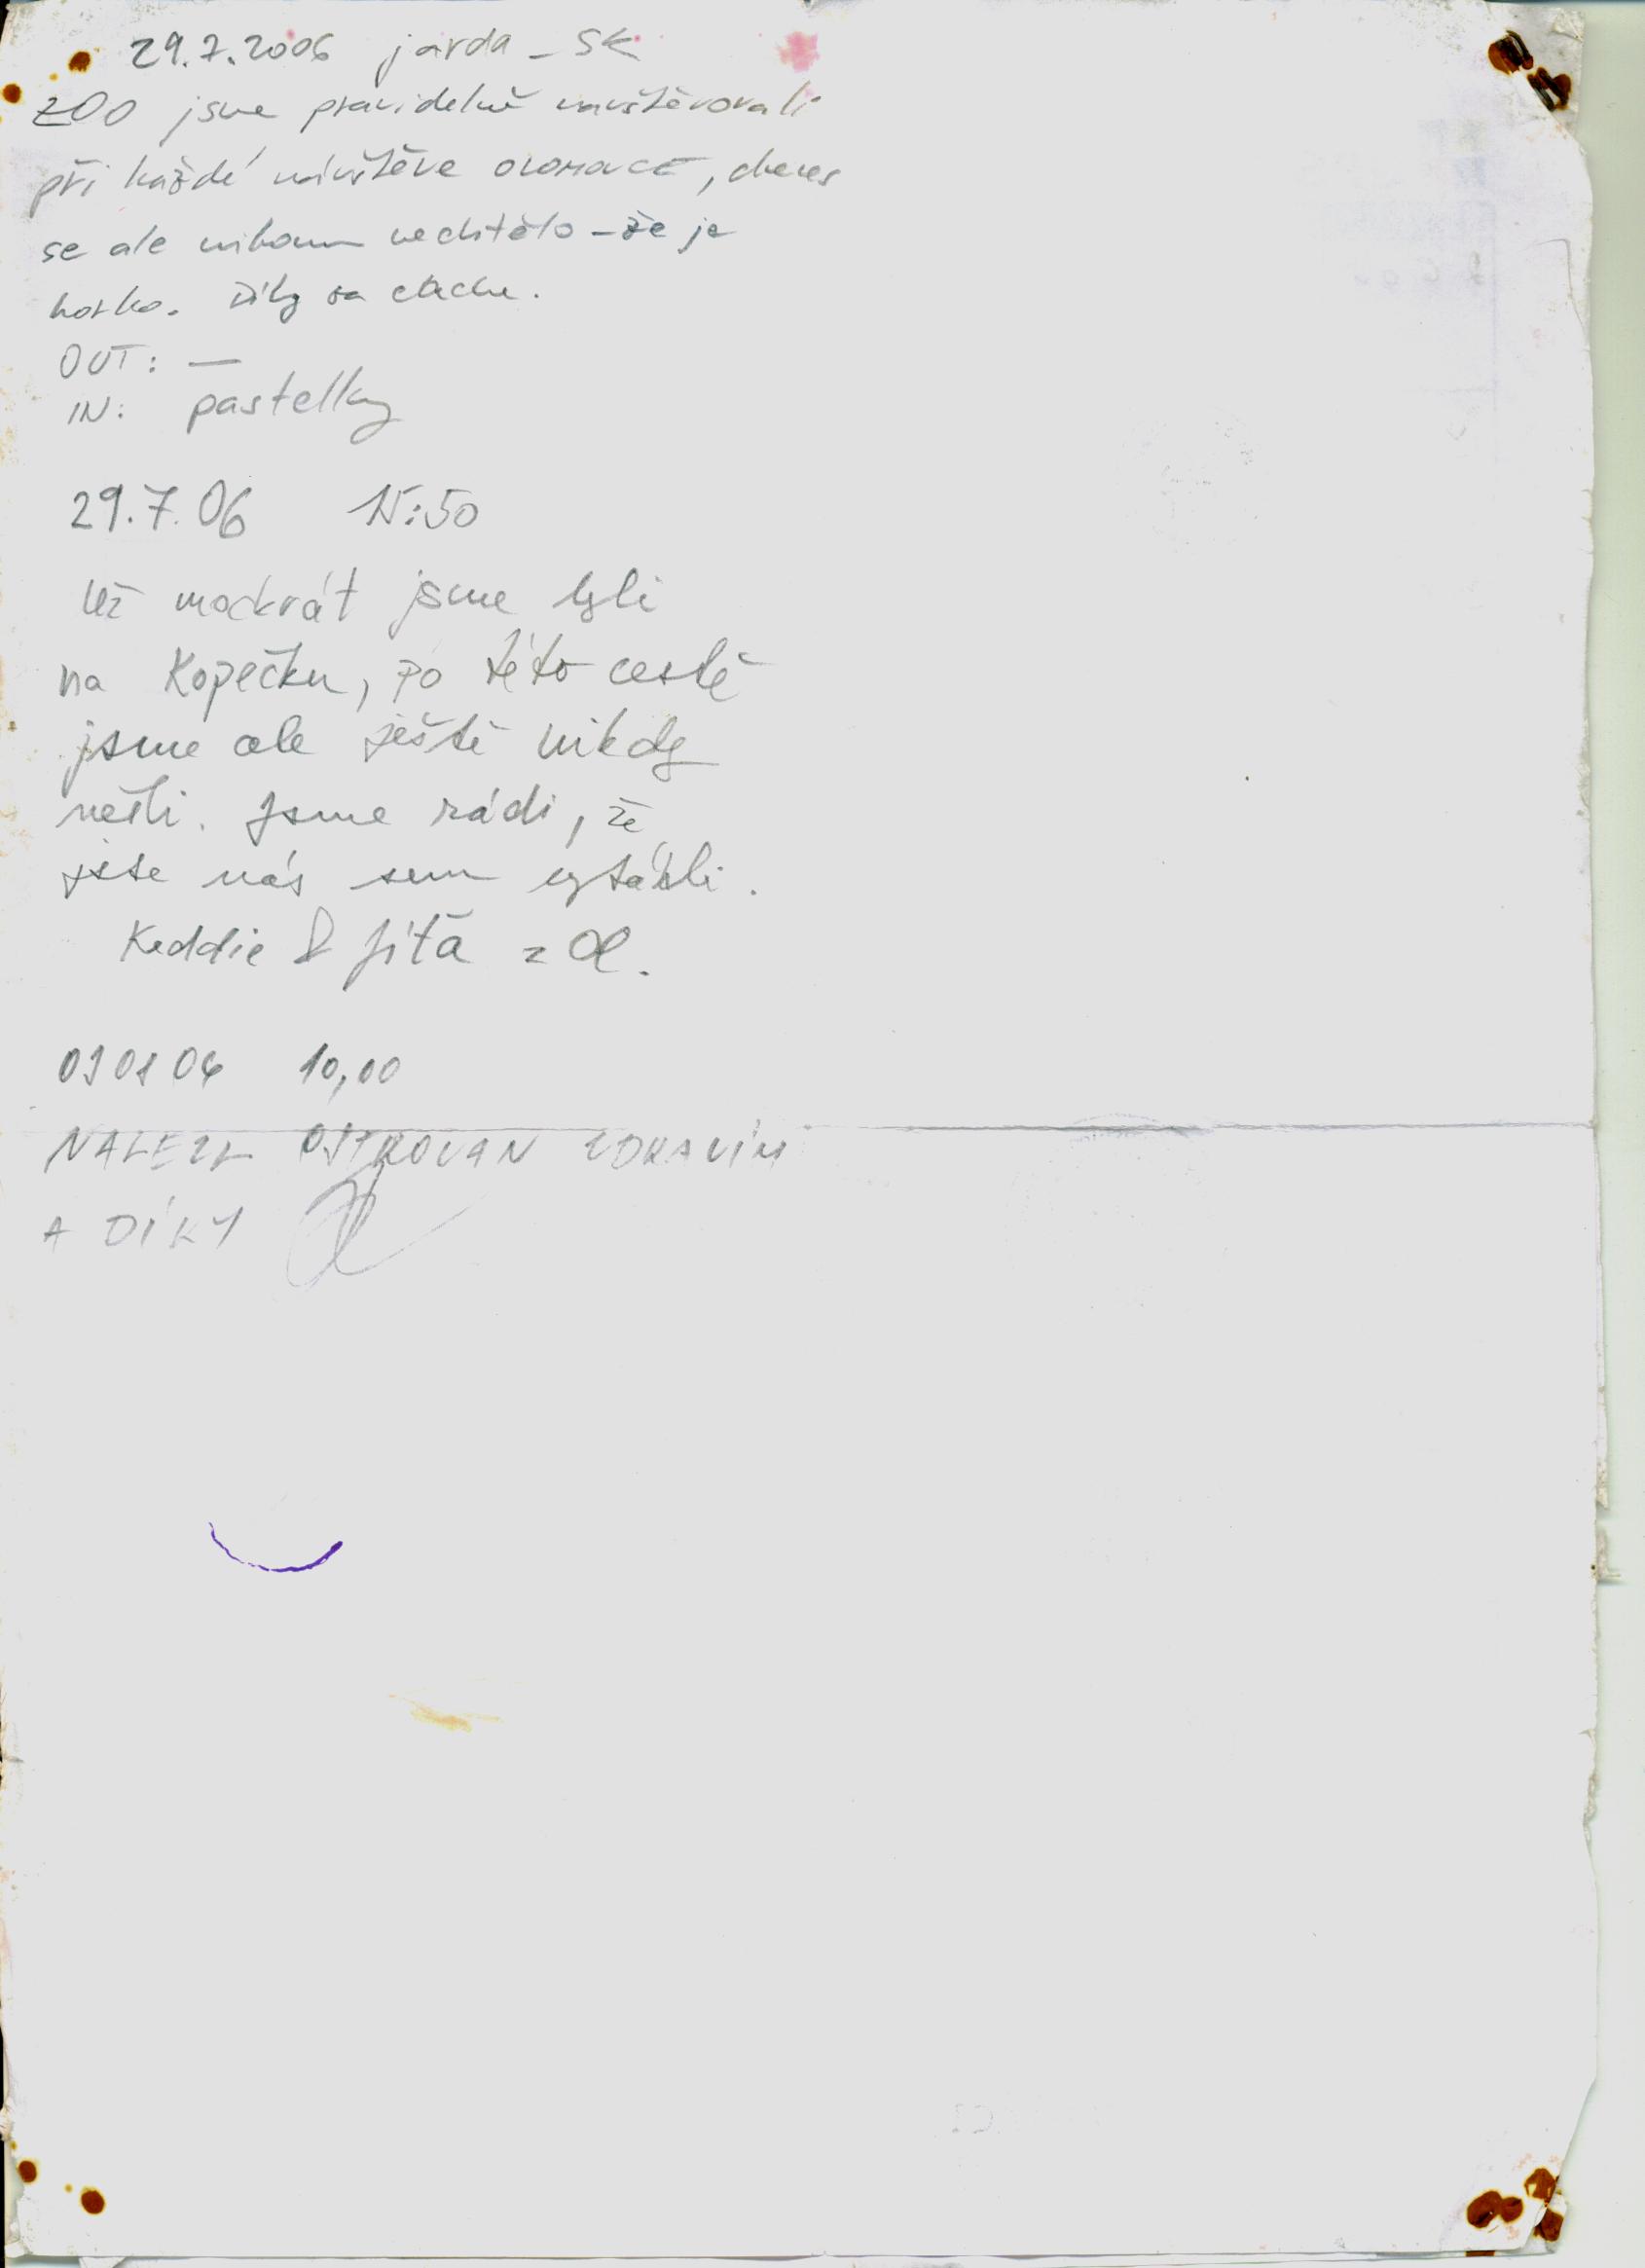 29.7.2006 jarda-SK
ZOO jsme pravidelně navštěvovali
při každé návštěve OLOMACE, dnes
se ale nikomu nechtělo - že je
horko. Díky za cache.
OUT: —
IN: pastelky
29.7.06 15:50
Už mockrát jsme byli
na Kopečku, po této cestě
jsme ale ještě nikdy
nešli. Jsme rádi, že
jste nás sem vytáhli.
Keddie & Jíťa z Ol.
10,00
NALEZL OSTROVAN ZDRAVÍM
A DÍKY